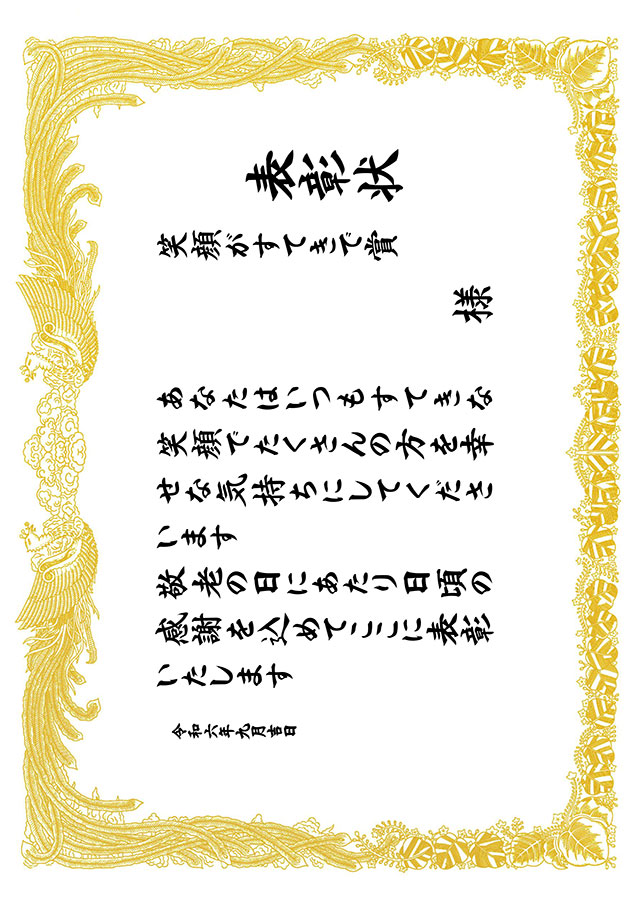 表彰状
笑顔がすてきで賞
様
あなたはいつもすてきな
笑顔でたくさんの方を幸
せな気持ちにしてくださ
います
敬老の日にあたり日頃の
感謝を込めてここに表彰
いたします
令和六年九月吉日